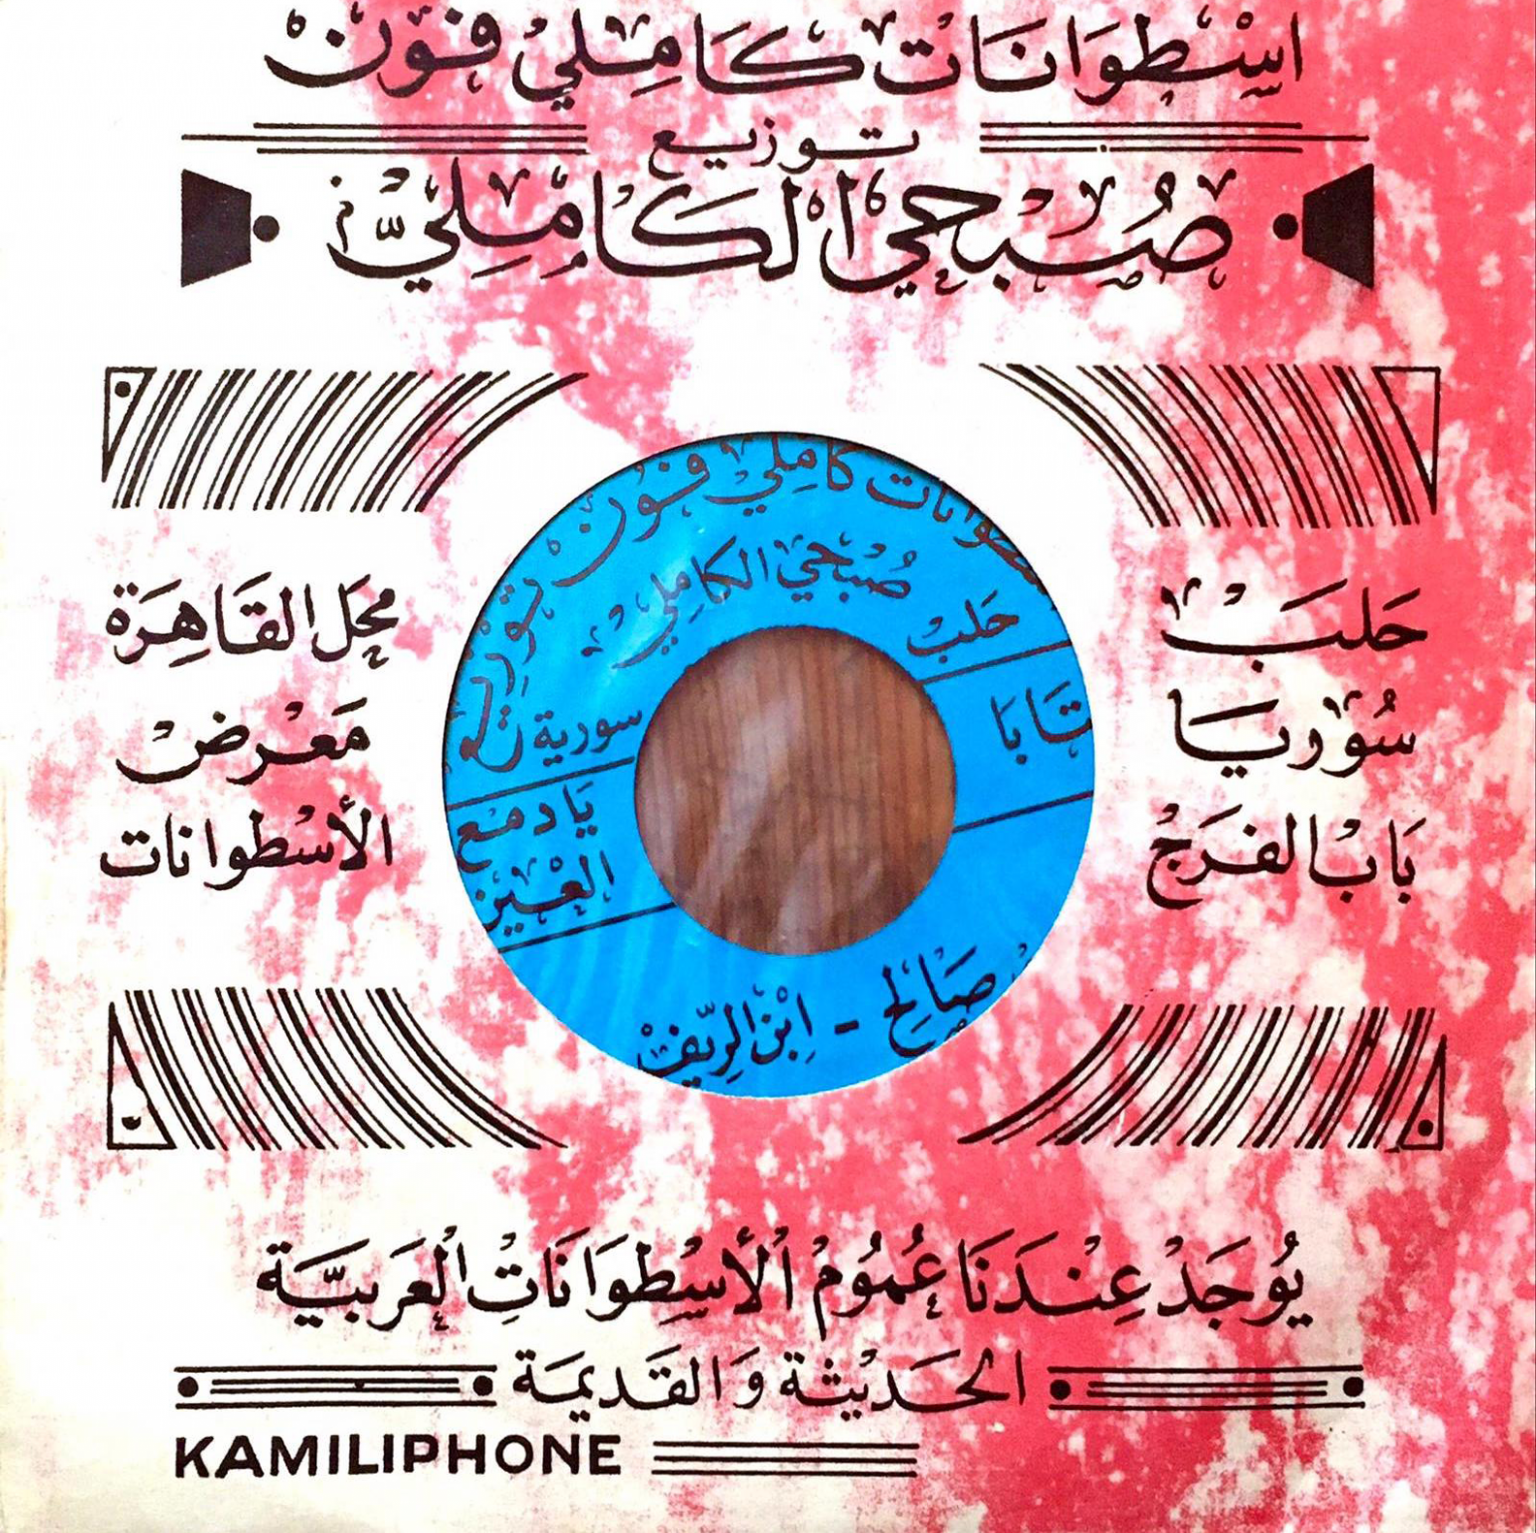 اسْطوَانَات كَامِلي فوُنْ
توزيع
صُبْحِي الكَامِليّ
حَلبْ
سُوريَا
بَابْ الفرَجْ
محَل القَاهِرَة
مَعْرضْ
الأسْطوانات
كامِلي فوُنْ
صُبْحِي الكامِلي
حَلبْ
سورية
يَا دمع
العْين
صَالِح - ابْن الرّيفْ
يُوجَدْ عِنْدَنَا عُمُومْ الْأسْطِوَانَاتِْ الْعَربيَّة
الحَديْثة وَ القَديمَة
KAMILIPHONE